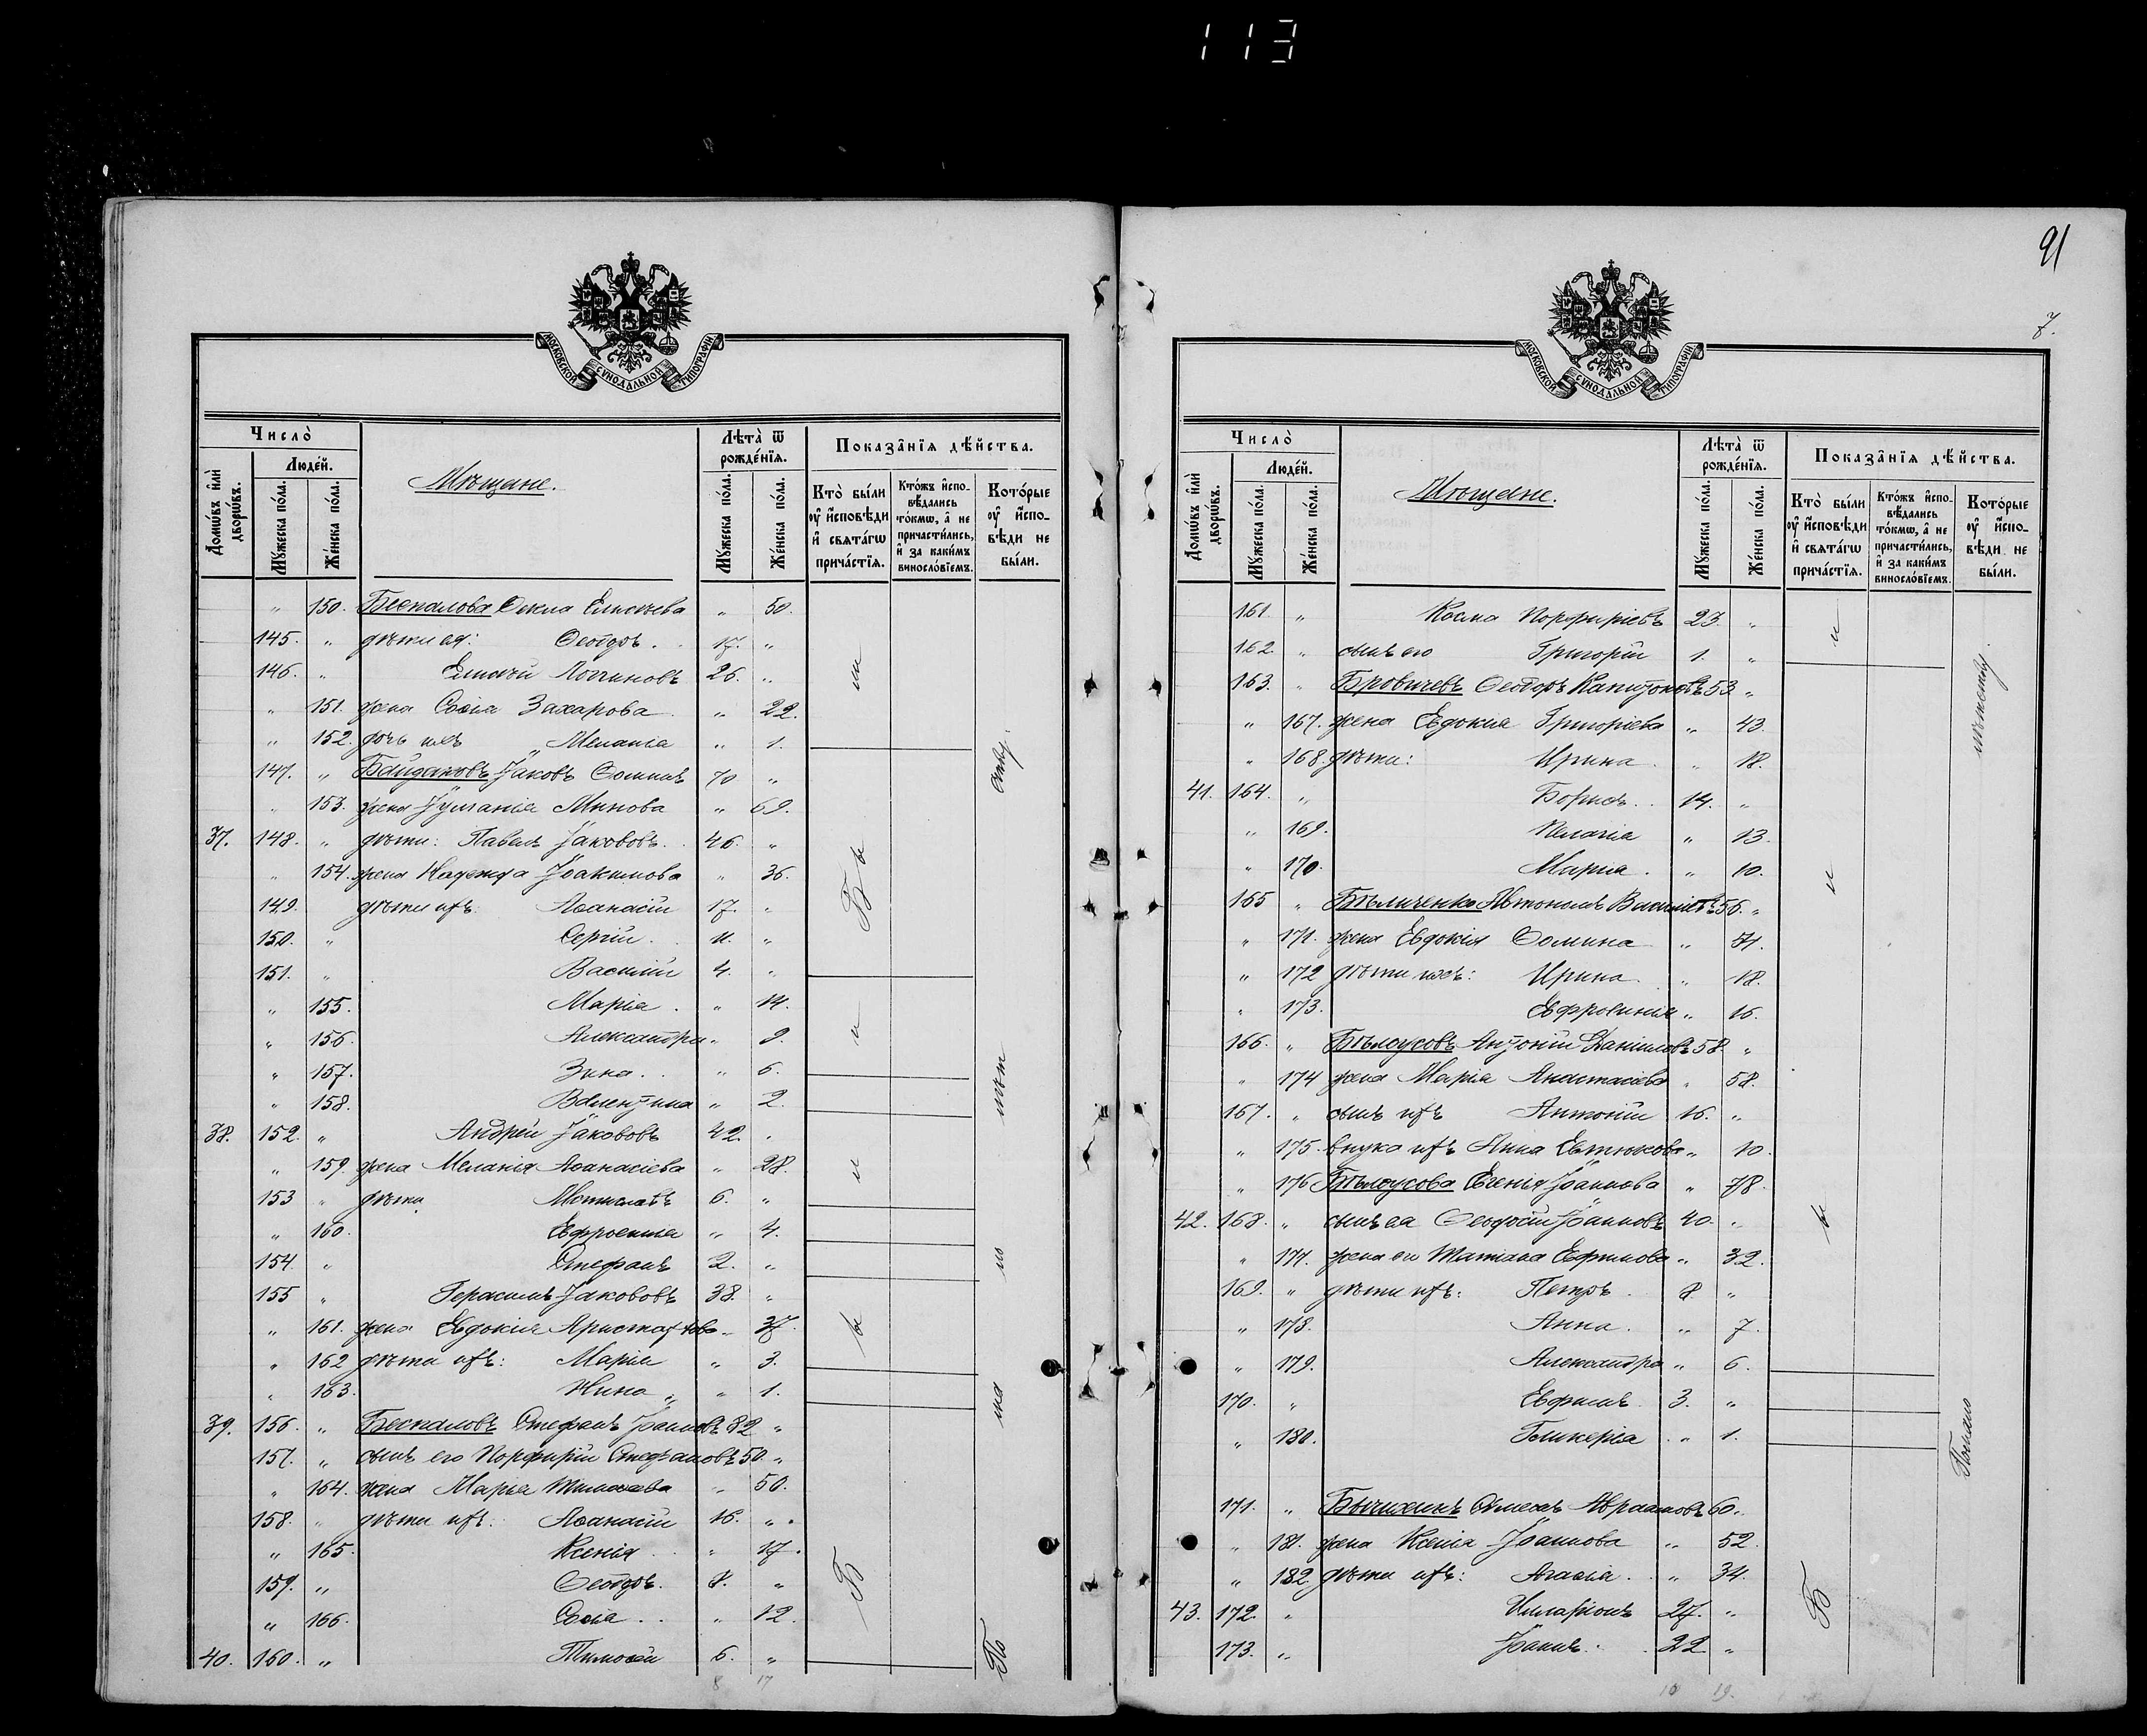 113
МОСКОВСКОЙ СѴНОДАЛЬНОЙ ТИПОГРАФІИ
Число̀
Людей.
Домѡвъ и҆лѝ дворѡвъ.
Мꙋжеска по́ла.
Же́нска по́ла.
Мѣщане.
Лѣта̀ ѿ рожде́нїѧ.
Мꙋжеска по́ла.
Же́нска по́ла.
Показа̑нїѧ дѣ́йства.
Кто̀ бы́ли оу҆ и҆́сповѣди и҆ свѧта́гѡ прича́стїѧ.
Кто́жъ и҆спо-вѣ́дались то́кмѡ, а҆ не причасти́лись, и҆ за каки́мъ винosло́вїемъ.
Кото́рые оу҆ и҆́спо-вѣди не бы́ли.
" 150. Беспалова Ѳекла Елисѣева " 50.
145. " дѣти ея: Ѳеодоръ . 17. "
146. " Елисѣй Логгиновъ 26. "
" 151. жена Софія Захарова " 22.
" 152. дочь ихъ Меланія " 1.
147. " Байдаковъ Іаковъ Ѳоминъ 70 "
" 153. жена Іуліанія Минова " 69.
37. 148. " дѣти: Павелъ Іакововъ. 46. "
" 154. жена Надежда Іоакимова " 36.
149. дѣти ихъ: Аѳанасій 17. "
150. " Сергій 11. "
151. " Василій 4. "
" 155. Марія . " 14.
" 156. Александра " 9.
" 157. Зина . " 6.
" 158. Валентина " 2.
38. 152. " Андрей Іакововъ 42. "
" 159. жена Меланія Аѳанасіева " 28.
153 " дѣти Мстиславъ 6. "
" 160. Ефросинія " 4.
154. " Стефанъ 2. "
155 " Герасимъ Іакововъ 38. "
" 161. жена Евдокія " 37.
" 162 дѣти ихъ: Марія " 3.
" 163. Нина " 1.
39. 156. " Беспаловъ Стефанъ Іоанновъ 82 "
157. " сынъ его Порфирій Стефановъ 50. "
" 164. жена Марія Тимоѳеева " 50.
158. " дѣти ихъ: Аѳанасій 16. "
" 165. Ксенія " 17.
159. " Ѳеодоръ. 8. "
" 166. Софія . . " 12.
40. 160. " Тимоѳей 6. "
8 17
91
7.
МОСКОВСКОЙ СѴНОДАЛЬНОЙ ТИПОГРАФІИ
Число̀
Людей.
Домѡвъ и҆лѝ дворѡвъ.
Мꙋжеска по́ла.
Же́нска по́ла.
Мѣщане.
Лѣта̀ ѿ рожде́нїѧ.
Мꙋжеска по́ла.
Же́нска по́ла.
Показа̑нїѧ дѣ́йства.
Кто̀ бы́ли оу҆ и҆́сповѣди и҆ свѧта́гѡ прича́стїѧ.
Кто́жъ и҆спо-вѣ́дались то́кмѡ, а҆ не причасти́лись, и҆ за каки́мъ винosло́вїемъ.
Кото́рые оу҆ и҆́спо-вѣди не бы́ли.
161. " Косма Порфиріевъ 23. "
162. " сынъ его Григорій 1. "
163. " Бровичевъ Ѳеодоръ Капитоновъ 53. "
" 167. жена Евдокія Григоріева " 43.
" 168. дѣти: Ирина . " 18.
41. 164. " Борисъ . . 14. "
" 169. Пелагія " 13.
" 170. Марія . " 10.
165 " Бѣличенко Автономъ Василіевъ 56. "
" 171. жена Евдокія Ѳомина " 51.
" 172 дѣти ихъ: Ирина . " 18.
" 173. Ефросинія " 16.
166. " Бѣлоусовъ Антоній Даніиловъ 58. "
" 174 жена Марія Анастасіева " 58.
167. " сынъ ихъ Антоній 16. "
" 175. внука ихъ Анна " 10.
" 176 Бѣлоусова Евгенія Іоаннова " 78.
42. 168. " сынъ ея Ѳеодосій Іоанновъ 40. "
" 177. жена его Татіана Ефимова " 32.
169. " дѣти ихъ: Петръ . 8. "
" 178. Анна . " 7.
" 179. Александра " 6.
170. " Ефимъ 3. "
" 180. Гликерія . " 1.
171. " Авраамовъ 60. "
" 181. жена Ксенія Іоаннова " 52.
" 182. дѣти ихъ: Агаѳія . " 34.
43. 172. " Иларіонъ 27. "
173. " Іоаннъ . 22 "
10 19.